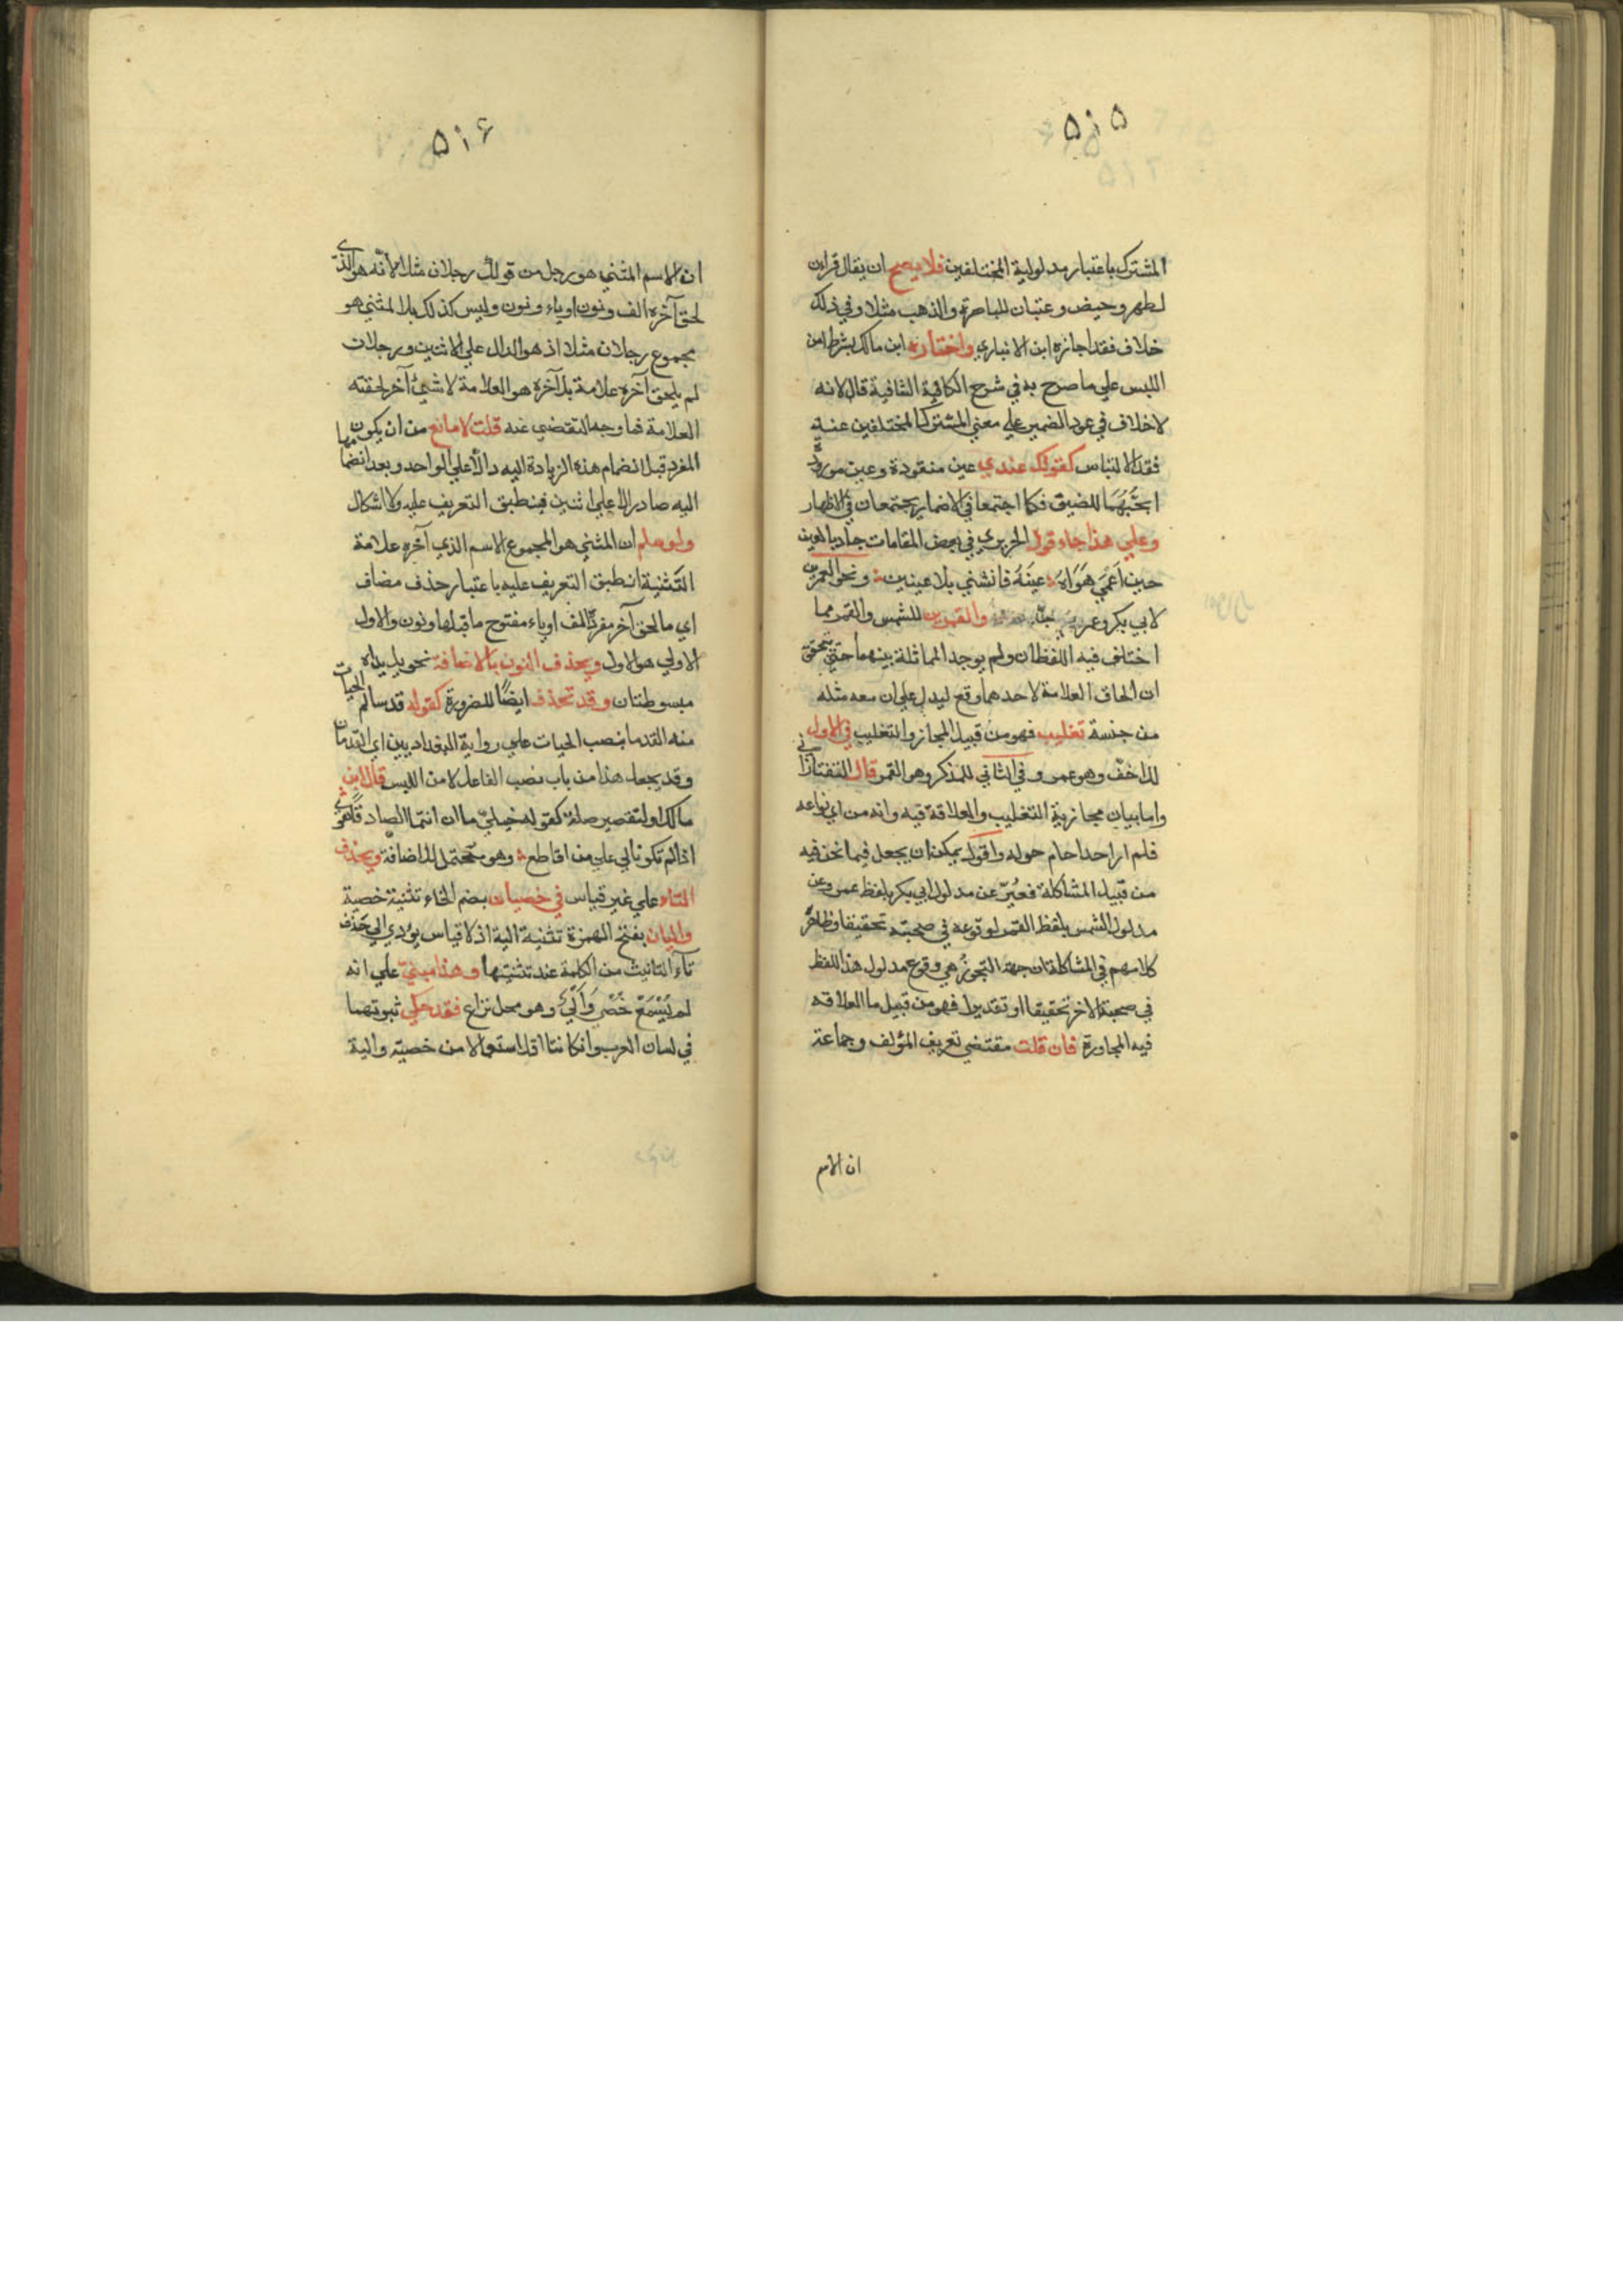 ٥١٥
المشترك باعتبار مدلولية المختلفين فلا يصح ان يقال قراءن
لطهر وحيض وعينان للباصرة والذهب مثلا وفي ذلك
خلاف فقد اجازه ابن الانباري واختاره ابن مالك بشرط امن
اللبس علي ما صرح به في شرح الكافية الشافية قال لانه
لا خلاف في عود الضمير علي معني المشترك المختلفين عنه
فقد الالتباس كقولك عندي عين منقودة وعين مورود
ابحتهما للضيف فكما اجتمعا في الاضمار يجتمعان في الاظهار
وعلي هذا جاء قول الحريري في بعض المقامات جاد بالعين
حين اعمي هواه عينه فانثني بلا عينين ونحو العمرين
لابي بكر وعمر والقمرين للشمس والقمر مما
اختلف فيه اللفظان ولم يوجد المماثلة بينهما حتي يتحقق
ان الحاق العلامة لاحدهما وقع ليدل علي ان معه مثله
من جنسه تغليب فهو من قبيل المجاز والتغليب في الاول
للاخف وهو عمر وفي الثاني للمذكر وهو القمر قال التفتازاني
واما بيان مجازية التغليب والعلاقة فيه وانه من اي انواعه
فلم ار احدا حام حوله واقول يمكن ان يجعل فيما نحن فيه
من قبيل المشاكلة فعبر عن مدلول ابي بكر بلفظ عمر وعن
مدلول الشمس بلفظ القمر لوقوعه في صحبته تحقيقا وظاهر
كلامهم في المشاكلة ان جهة التجوز هي وقوع مدلول هذا اللفظ
في صحبة الاخر تحقيقا او تقديرا فهو من قبيل ما العلاقة
فيه المجاورة فان قلت مقتضي تعريف المؤلف وجماعة
ان الاسم
٥١٦
ان الاسم المثني هو رجل من قولك رجلان مثلا لانه هو الذي
لحق آخره الف ونون او ياء ونون وليس كذلك بل المثني هو
مجموع رجلان مثلا اذ هو الدال علي الاثنين ورجلان
لم يلحق آخره علامة بل آخره هو العلامة لا شئ آخر لحقته
العلامة فما وجه التقضي عنه قلت لا مانع من ان يكون
المفرد قبل انضمام هذه الزيادة اليه دالا علي الواحد وبعد انضمامها
اليه صار دالا علي اثنين فينطبق التعريف عليه ولا اشكال
ولو سلم ان المثني هو المجموع الاسم الذي آخره علامة
التثنية انطبق التعريف عليه باعتبار حذف مضاف
اي ما لحق آخر مفرده الف او ياء مفتوح ما قبلها ونون والاول
الاولي هو الاول ويحذف النون بالاضافة نحو بل يداه
مبسوطتان وقد تحذف ايضا للضرورة كقوله قد سالم الحيات
منه القدما بنصب الحيات علي رواية البغداديين اي القدمان
وقد يجعل هذا من باب نصب الفاعل لامن اللبس قال ابن
مالك او لتقصير صلة كقوله خليلي ما ان انتما الصادقا هوي
اذا لم تكونا لي علي من اقاطع وهو محتمل للاضافة ويحذف
التاء علي غير قياس في خصيان بضم الخاء تثنية خصية
واليان بفتح الهمزة تثنية الية اذ لا قياس يؤدي الي حذف
تآء التانيث من الكلمة عند تثنيتها وهذا مبني علي انه
لم يسمع خصي والي وهو محل نزاع فقد حكي ثبوتهما
في لسان العرب وان كانتا اقل استعمالا من خصية والية